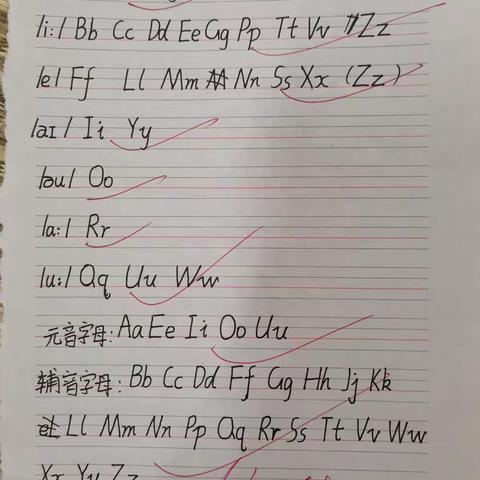 /i:/ Bb Cc Dd Ee Gg Pp Tt Vv Zz
/e/ Ff Ll Mm Nn Ss Xx (Zz)
/aɪ/ Ii Yy
/əu/ Oo
/a:/ Rr
/u:/ Qq Uu Ww
元音字母: Aa Ee Ii Oo Uu
辅音字母: Bb Cc Dd Ff Gg Hh Jj Kk
Ll Mm Nn Pp Qq Rr Ss Tt Vv Ww
Xx Yy Zz